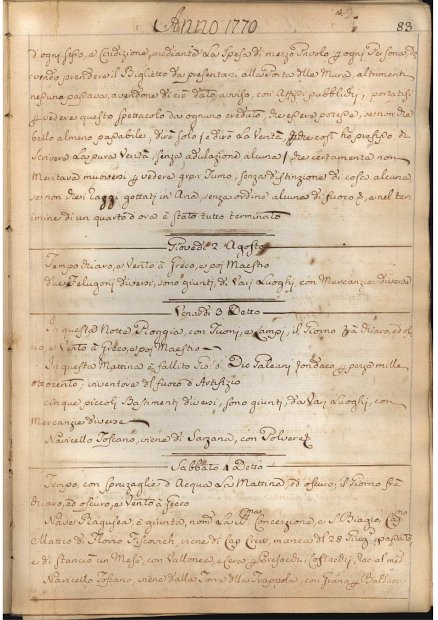 Anno 1770
83
d'ogni sesso, e Condizione, mediante La Spesa di mezzo Pavolo p ogni Persona, do
vendo prendere il Biglietto da presentare alla Porta delle Mura, altrimenti
nessuno passava, avendone di ciò dato avviso, con Affissi pubblici, portatisi
p vedere questo spettacolo da ognuno creduto, che essere potesse, se non che
bello almeno passabile, dirò solo / e dirò La Verità che così hò prefisso di
scrivere La pura Verità, senza adulazione alcuna / che certamente non
Meritava muoversi p vedere gran fumo, senza distinzione di cosa alcuna,
se non dieci gottati in Aria, senza ordine alcuno di fuoco, e nel ter
mine di un quarto d'ora è stato tutto terminato
Giovedì 2 Agosto
Tempo chiaro, e Vento à Greco, e poi Maestro
due Felugoni diversi, sono giunti, da Varj Luoghi, con Mercanzie diverse
Venerdì 3 Detto
In questa Notte Pioggia, con Tuoni, e Lampi, il Giorno frà chiaro, ed oscu
ro, e Vento à Greco, e poi Maestro
In questa Mattina è fallito Gio: di Dio Valeani fondaco p pezze mille
ottocento, inventore del fuoco d'Artifizio
cinque piccoli Bastimenti diversi, sono giunti, da Varj Luoghi, con
Mercanzie diverse
Navicello Toscano, viene di Sarzana, con Polvere
Sabbato 4 Detto
Tempo, con spruzaglie d'Acqua La Mattina, ed oscuro, il Giorno, frà
chiaro, ed oscuro, e Vento à Greco
Nave Ragusea è giunta, nomta La Concezione, e S. Biagio, Cap.no
Matteo di Florio Fiscovich, viene di Cap Crio, manca del 28 Giug. passato,
e di Stanciò un Mese, con Vallonea, e Cera p
Navicello Toscano, viene dalla Torre della Trappola, con Grano p